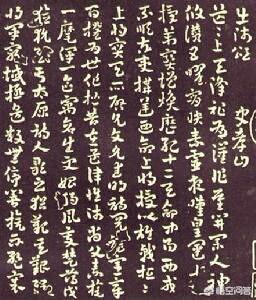 出師頌 史孝山
茫茫上天降祚為漢作基開業人神
攸讚五曜霄映素靈夜歎皇運未
授萬寶增煥歷紀十二天命中易西戎
不順東夷構逆乃命上將授以雄戟桓桓
上將寔天所啟允文允武明詩閱禮憲章
百揆為世作楷昔在孟津惟師尚父素旄
一麾渾一區宇蒼生更始朔風變楚薄伐
獫狁至于太原詩人歌之猶歎其艱況我
將軍窮域極邊鼓無停響旗不蹔褰
悟空问答